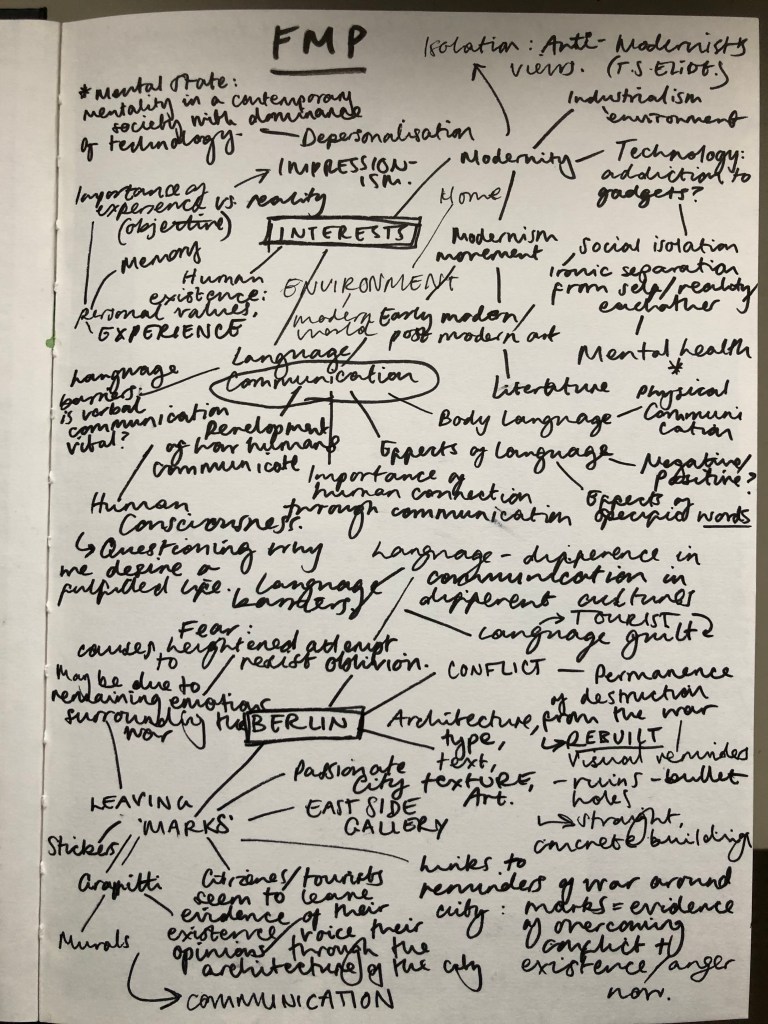 FMP
Isolation: Anti-Modernists
views. (T.S. Eliot.)
* Mental state:
mentality in a contemporary
society with dominance
of technology.
Depersonalisation
Industrialism
environment
Modernity
Technology:
addiction to
gadgets?
IMPRESSION-
ISM.
Importance of
experience vs reality
(objective)
Home
INTERESTS
Memory
Modernism
movement
Social isolation
ironic separation
from self/reality/
eachother
Human
existence:
Personal values,
EXPERIENCE
ENVIRONMENT
modern
world
Early modern/
post modern art
Mental health
*
Language
Communication
Literature
Language
barriers:
is verbal
communication
vital?
Body Language
Physical
Communi
cation
Development
of how humans
communicate
Effects of Language
Negative/
positive?
Effects of
specific words
Importance of
human connection
through communication
Human
Consciousness.
↳ Questioning why
we desire a
fulfilled life.
Language
barriers.
Language - difference in
communication in
different cultures
→ TOURIST
Language guilt
Fear:
causes heightened attempt
to resist oblivion.
May be due to
remaining emotions
surrounding the
war
BERLIN
CONFLICT — Permanence
of destruction
from the war
↳ REBUILT
Visual reminders
- ruins - bullet
holes
↳ straight,
concrete buildings
Architecture,
type,
text,
TEXTURE,
Art.
Passionate
City
EAST SIDE
GALLERY
LEAVING
'MARKS'
Stickers
Grapitti
Murals
Citizens/tourists
seem to leave
evidence of their
existence, voice their
opinions through the
architecture of the city
COMMUNICATION
Links to
reminders of war around
city: marks = evidence
of overcoming
conflict +
existence/anger
now.